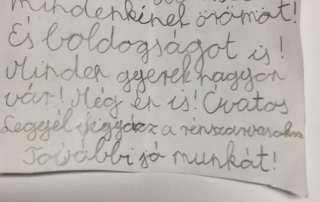 mindenkinek örömöt!
És boldogságot is!
Minden gyerek nagyon
vár! Még én is! Óvatos
Leggyél figyázz a rénszarvasokra
További jó munkát!